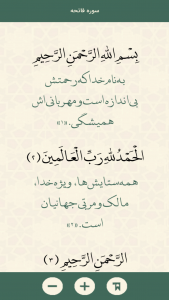 سوره فاتحه
بِسْمِ اللَّهِ الرَّحْمَنِ الرَّحِيمِ
به نام خدا که رحمتش
بی‌اندازه است و مهربانی‌اش
همیشگی. «۱»
الْحَمْدُ لِلَّهِ رَبِّ الْعَالَمِينَ (۲)
همه ستایش‌ها، ویژه خدا،
مالک و مربی جهانیان
است. «۲»
الرَّحْمَنِ الرَّحِيمِ (۳)